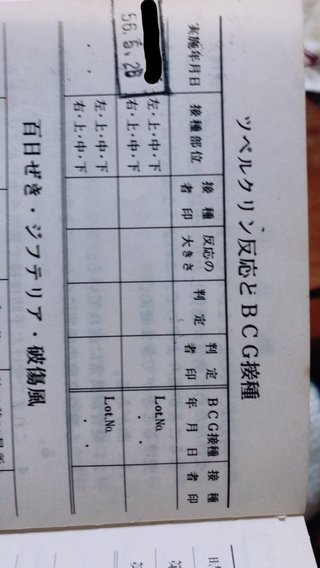 ツベルクリン反応とBCG接種
実施年月日 接種部位 接種者印 反応の大きさ 判定 判定者印 BCG接種年月日 接種者印
56.5.26 左・上・中・下 Lot.No.
右・上・中・下 ・ ・
左・上・中・下 Lot.No.
・ ・ 右・上・中・下 ・ ・
百日ぜき・ジフテリア・破傷風